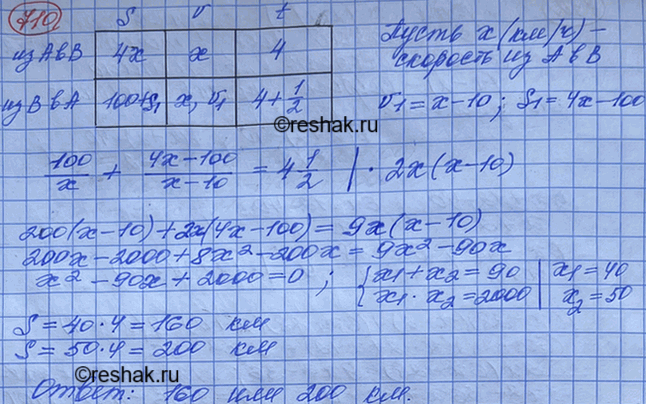 710
S v t
из А в В 4x x 4
из В в А 100+S₁ x, v₁ 4+1/2
Пусть x (км/ч) –
скорость из А в В
v₁ = x – 10 ; S₁ = 4x – 100
©reshak.ru
100/x + (4x – 100)/(x – 10) = 4 1/2 | · 2x(x – 10)
200(x – 10) + 2x(4x – 100) = 9x(x – 10)
200x – 2000 + 8x² – 200x = 9x² – 90x
x² – 90x + 2000 = 0 ; { x₁ + x₂ = 90 | x₁ = 40
x₁ · x₂ = 2000 | x₂ = 50
S = 40 · 4 = 160 км
S = 50 · 4 = 200 км
©reshak.ru
Ответ: 160 или 200 км.